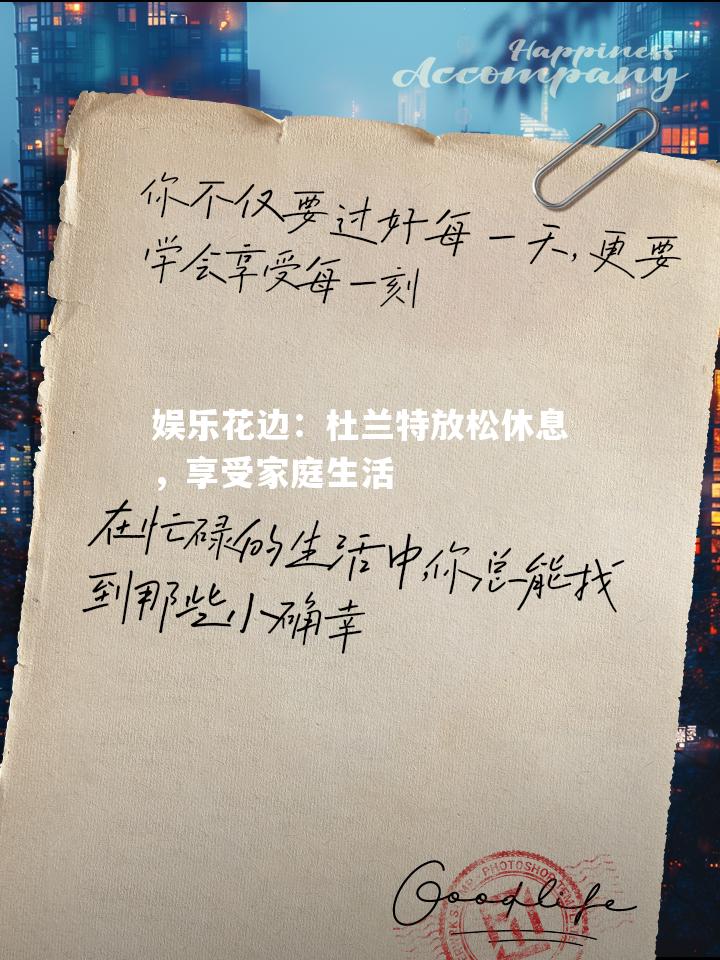 Happiness
Accompany
你不仅要过好每一天,更要
学会享受每一刻
娱乐花边：杜兰特放松休息
，享受家庭生活
在忙碌的生活中,你总能找
到那些小确幸
PHOTOSHOP
Goodlife